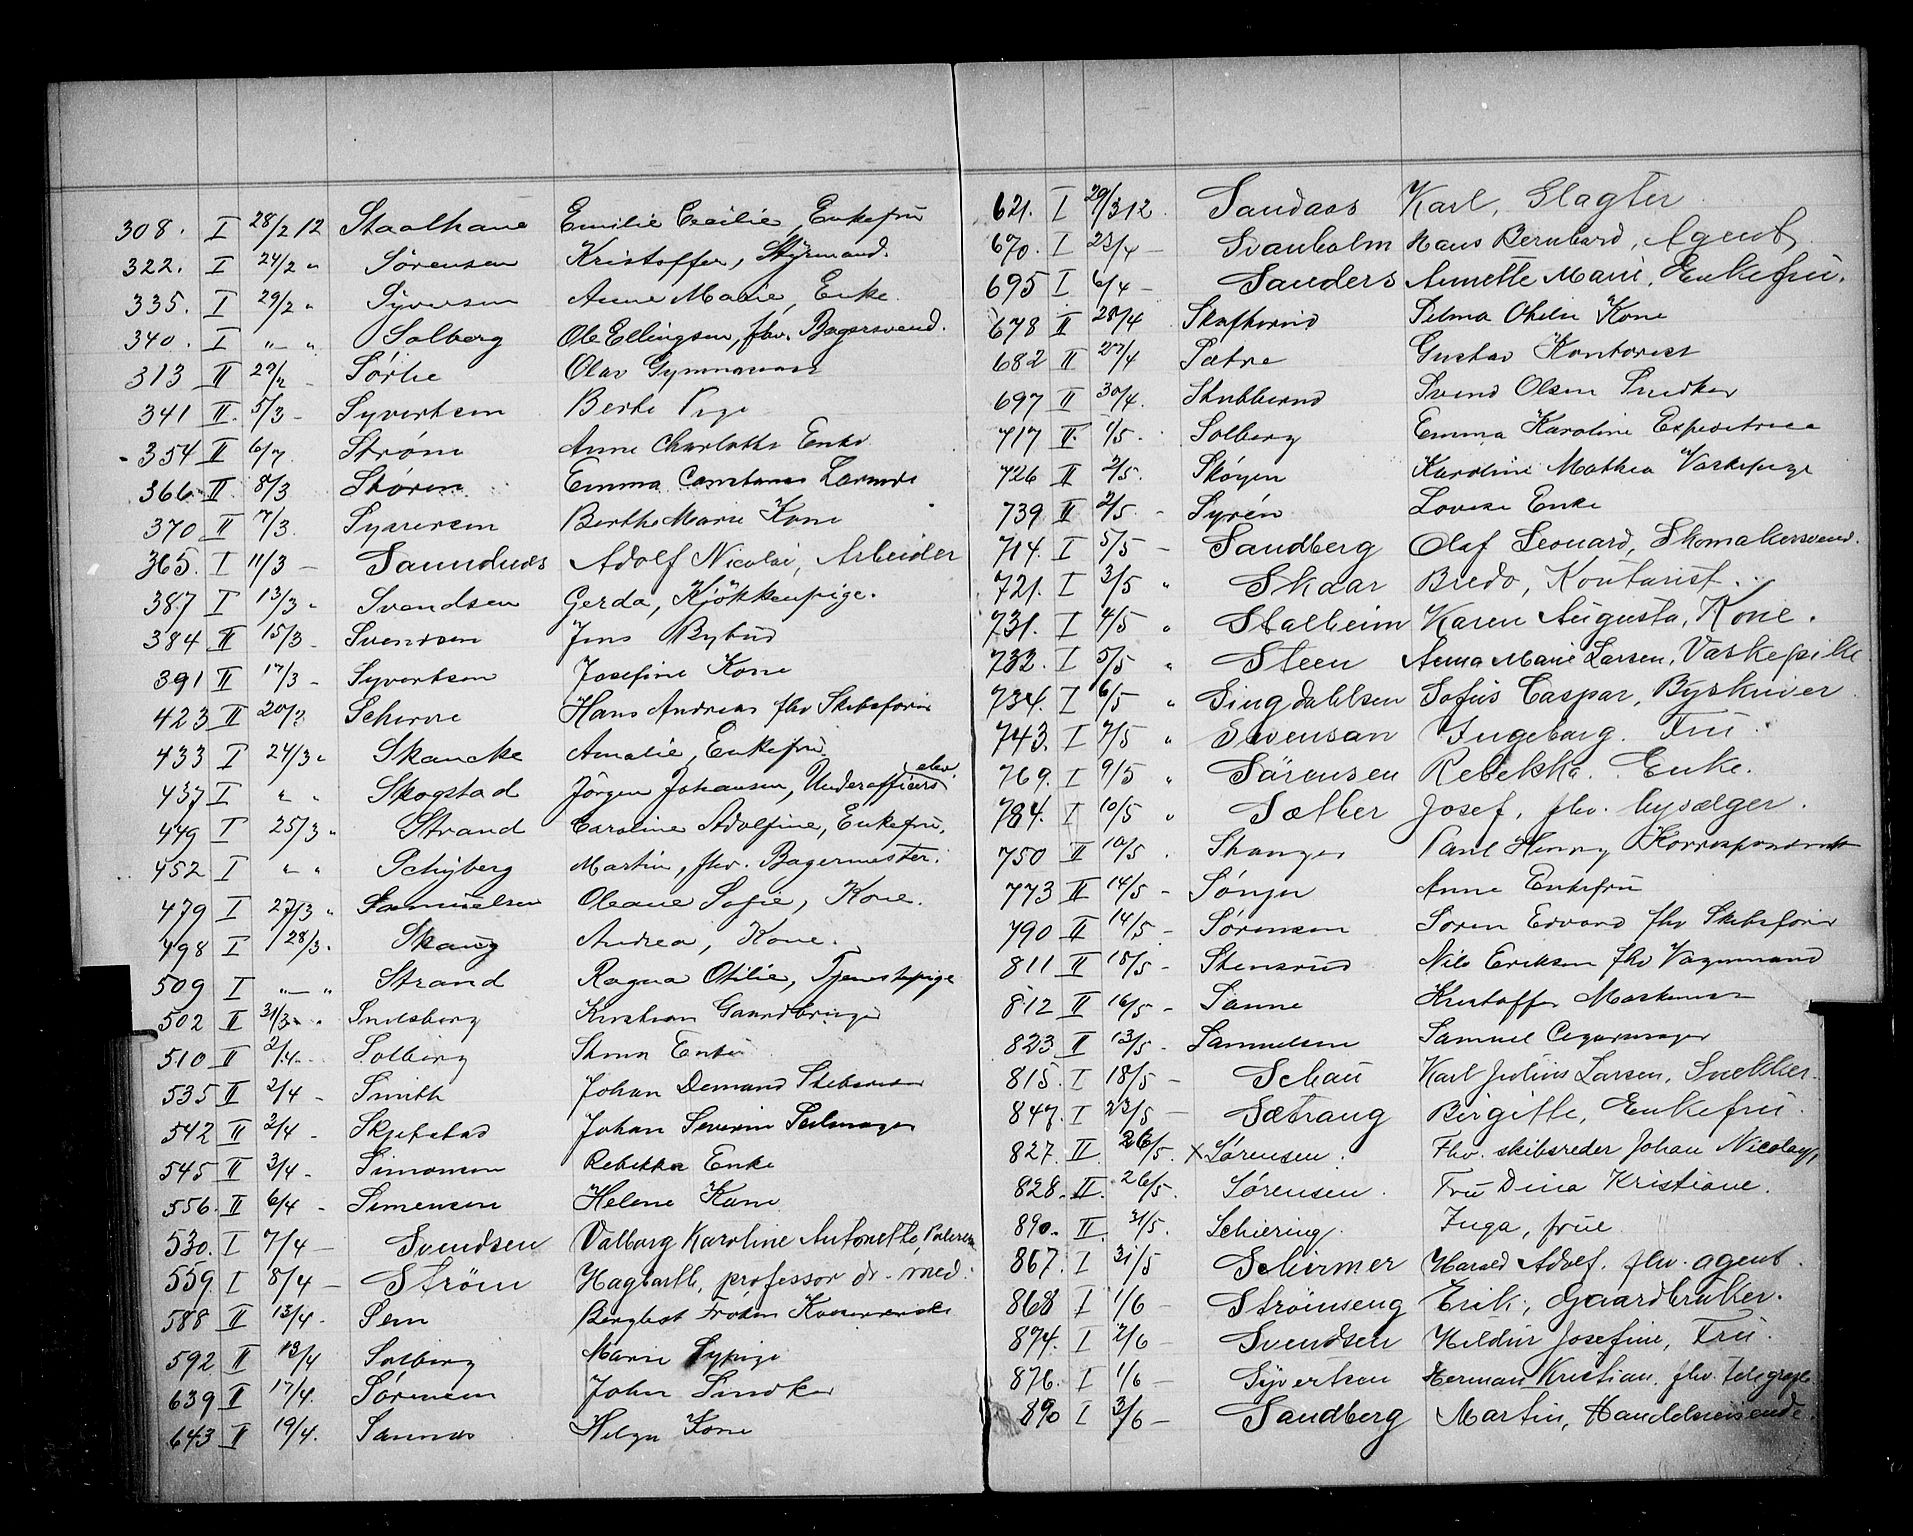 308. I 28/2 12 Staalhane Emilie Cecilie, Enkefru
322. I 24/2 " Sørensen Kristoffer, Styrmand.
335. I 29/2 " Syversen Anne Marie, Enke.
340. I " " Solberg Ole Ellingsen, fhv. Bagersvend.
313 II 29/2 - Sørlie Olav Gymnasiast
341 II. 5/3 - Syvertsen Berte Pige
354 II Strøm Anne Charlotte Enke
366 II 8/3 Støren Emma Constance
370 II 7/3. Syversen Berthe Marie Kone
365. I 11/3 - Adolf Nicolai, Arbeider
387 I 13/3 " Svendsen Gerda, Kjökkenpige.
384 II 15/3 - Svendsen Jens Bybud
391 II 17/3 - Syvertsen Josefine Kone
423 II 20/3 Hans Andreas fhv Skibsfører
433 I 24/3 " Skancke Amalie, Enkefru
437 I " " Skogstad Jörgen Johansen, Underofficerselev
449 I 25/3 " Strand Caroline Adolfine, Enkefru.
452 I " " Schyberg Martin, fhv. Bagermester.
479 I 27/3 " Samuelsen Oleane Sofie, Kone.
498 I 28/3. Skaug Andrea, Kone.
509 I " " Strand Ragna Otilie, Tjenestepige
502 II 31/3 " Snelsberg Kristian Gaardbruger
510 II 2/4 - Solberg Enke
535 II 2/4 - Smith Johan
542 II 2/4 - Skjebstad Johan Severin Seilmager
545 II 3/4 - Simonsen Rebekka Enke
556. II 6/4 - Simensen Helene Kone
530. I 7/4 - Svendsen Valborg Karoline Antonette,
559. I 8/4 - Strøm Hagbarth, professor dr. med.
588 II 13/4 - Sem Bergliot Frøken
592 II 13/4 Solberg Marie Sypige
639 II 17/4. Sørensen John Snedker
643 II 19/4. Sannes Helga Kone
621. I 29/3 12. Sandaas Karl, Slagter
670. I 23/4 - Svanholm Hans Bernhard, Agent
695 I 6/4 - Sanders Annette Marie, Enkefru.
678 II 28/4 Skaftorud Selma Kone
682 II 27/4 Sætre Gustav Kontorist
697 II 30/4. Stubberud Svend Olsen Snedker
717 II. 1/5. Solberg Emma Karoline Expeditrice
726 II 2/5. Skøyen Karoline Mathea Vaskepige
739 II 2/5. - Syrén Lovise Enke
714. I 5/5 - Sandberg Olaf Leonard, Skomakersvend.
721. I 3/5 " Skaar Bredo, Kontorist.
731. I 4/5 " Stalheim Karen Augusta, Kone.
732. I 5/5 " Steen Anna Marie Larsen, Vaskepike
734. I 6/5 " Singdahlsen Sofus Caspar, Byskriver
743. I 7/5 " Svensson Ingeborg. Fru.
769. I 9/5 " Sørensen Rebekka. Enke.
784. I 10/5 " Sæther Josef, fhv. lysælger.
750 II 10/5 . Stanger Paul Henry Korrespondent
773 II 14/5 - Anne Enkefru
790 II 14/5 - Sørensen Søren Edvard fhv Skibsfører
811 II 18/5 - Stensrud Nils Eriksen fhv Vognmand
812 II 16/5 - Sanne Kristoffer Maskinist
823 II 13/5 - Samuelsen Samuel Cigarmager
815. I 18/5 - Schau Karl Julius Larsen, Snekker.
847. I 23/5 - Sætrang Birgitte, Enkefru.
827. II. 26/5. x Sørensen. Fhv. skibsreder Johan Nicolay,
828. II. 26/5. Sørensen. Fru Dina Kristiane.
890. II. 31/5. Schiering Inga, frue
867. I 31/5 Schirmer Harald Adolf. fhv. agent.
868 I 1/6 - Strömseng Erik, Gaardbruker.
874. I 2/6 - Svendsen Hildur Josefine, Fru.
876. I 1/6 - Syvertsen Herman Kristian. fhv. telegraf
890 I 3/6 - Sandberg Martin, Handelsreisende.